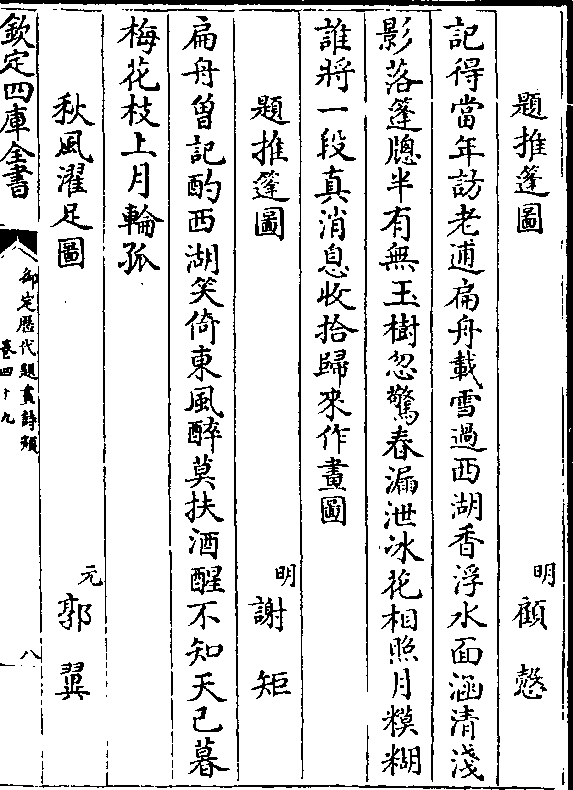 題推篷圖 明 顧愨
記得當年訪老逋扁舟載雪過西湖香浮水面涵清淺
影落篷牕半有無玉樹忽驚春漏泄冰花相照月糢糊
誰將一段真消息收拾歸來作畫圖
題推篷圖 明 謝矩
扁舟曾記酌西湖笑倚東風醉莫扶酒醒不知天已暮
梅花枝上月輪孤
秋風濯足圖 元 郭翼
欽定四庫全書
御定歷代題畫詩類
卷四十九
八